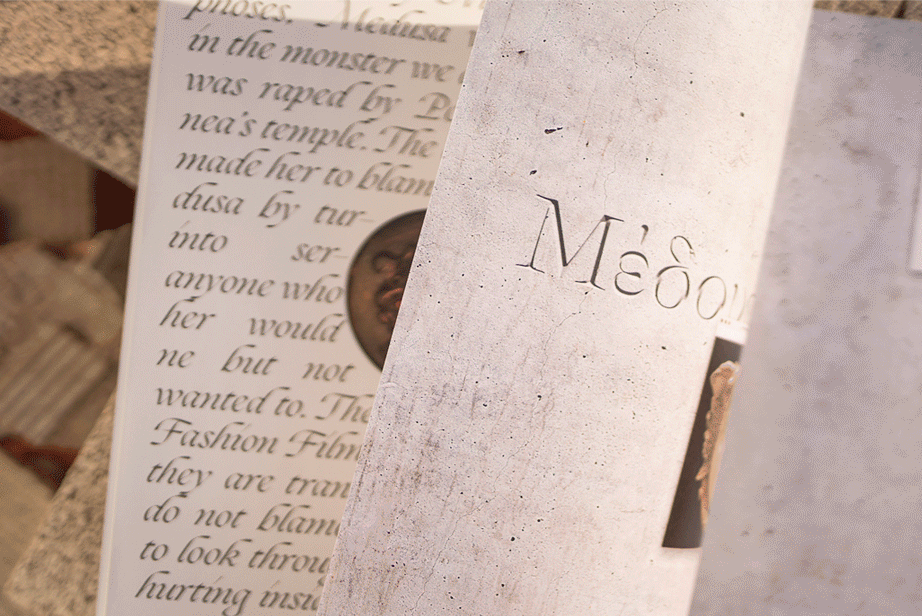 phoses. Medusa
in the monster we
was raped by Po
nea's temple. The
made her to blam
dusa by tur-
into ser-
anyone who
her would
ne but not
wanted to. The
Fashion Film
they are tran
do not blame
to look throu
hurting insi
Μέδου